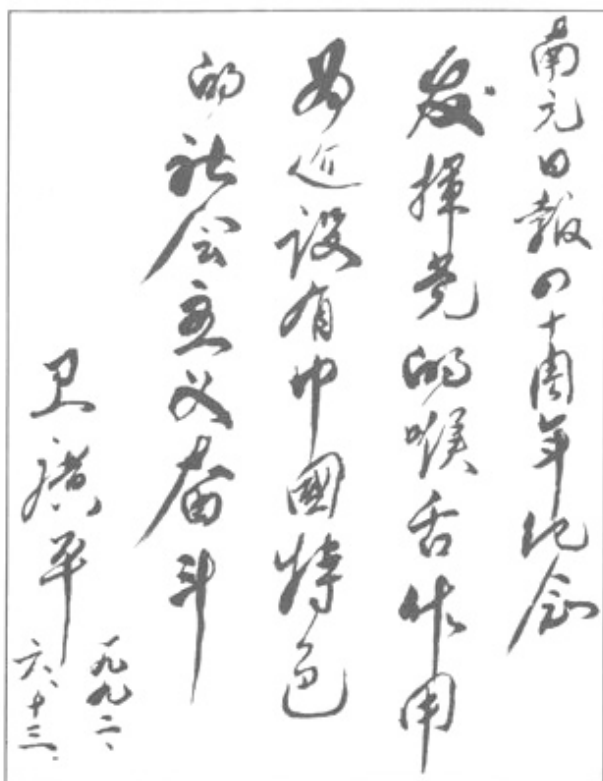 南充日報四十周年纪念
发揮党的喉舌作用
为建设有中國特色
的社会主义奋斗
卫廣平
一九九二、
六、十三.